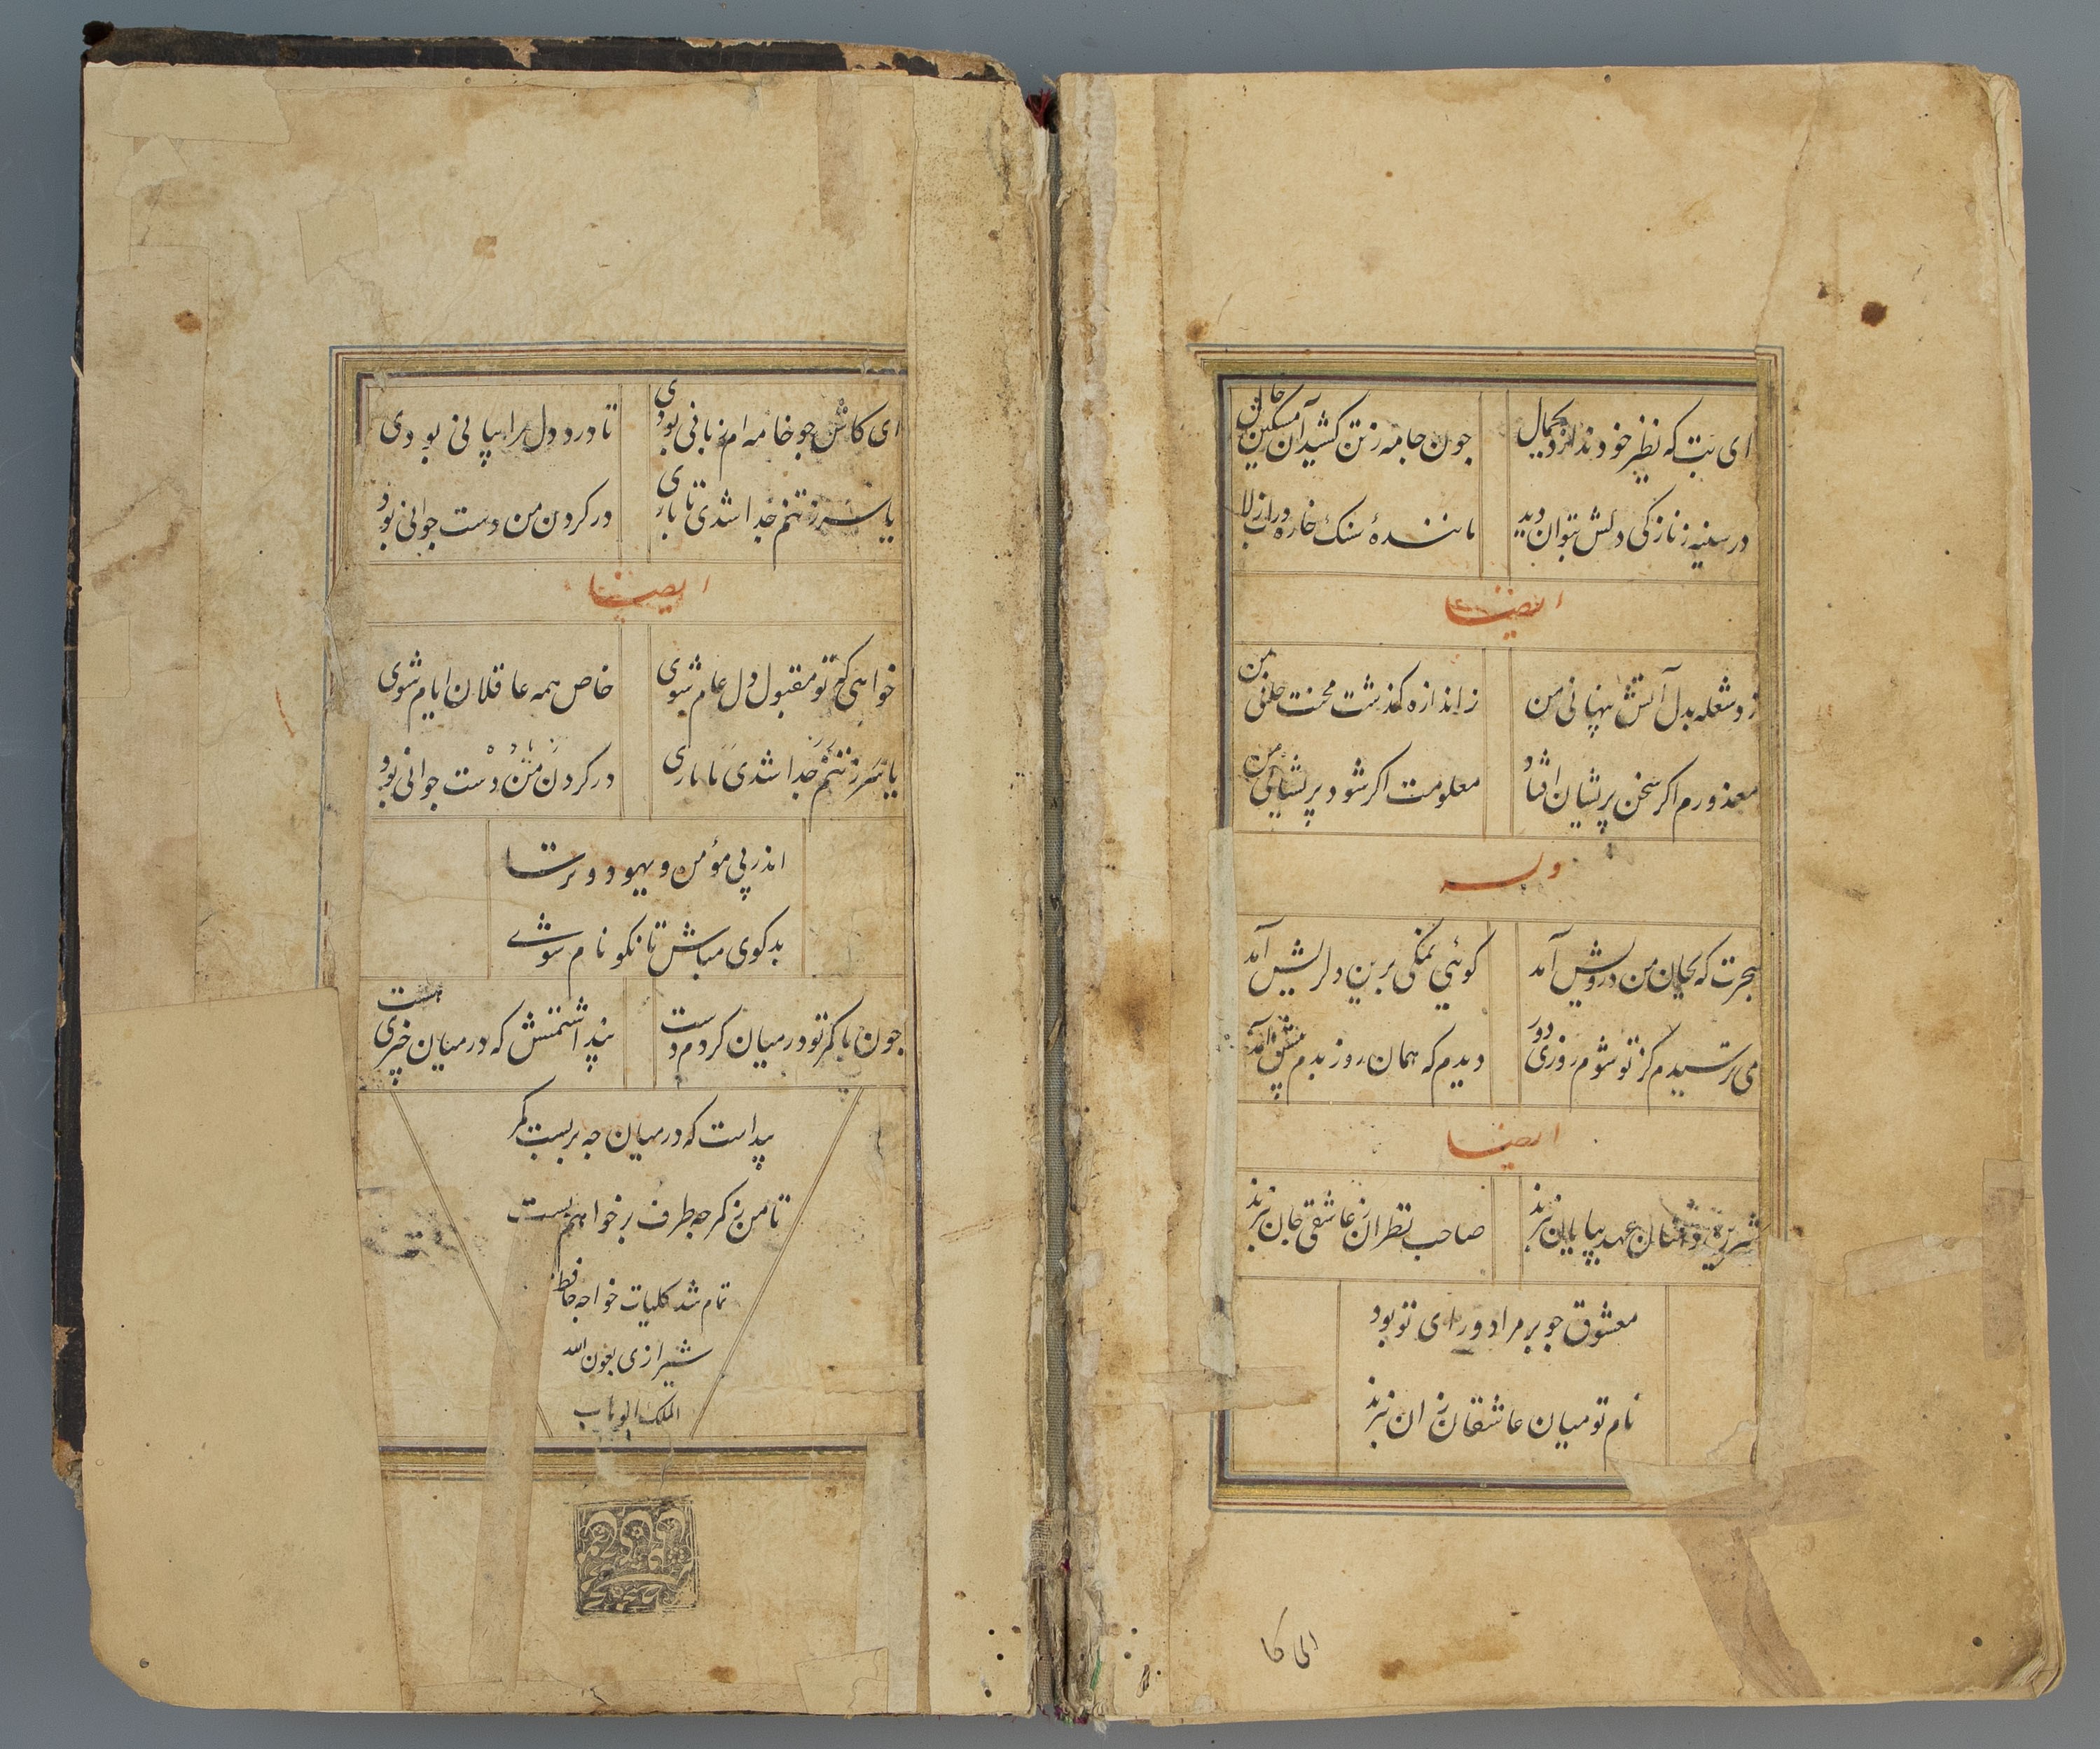 ای بت که نظیر خود ندارد بجمال
جون جامه ز تن کشید آن مسکین خال
در سینه ز نازکی دلش بتوان دید
مانندهٔ سنک خاره در آب زلال
ایضا
زد شعله بدل آتش پنهانی من
ز اندازه گذشت محنت جانی من
معذورم اکر سخن پریشان افتاد
معلومت اکر شود پریشانی من
وله
هجرت که بجان من درویش آمد
کوئی نمکی برین دل ریش آمد
می ترسیدم کز تو شوم روزی دور
دیدم که همان روز بدم پیش آمد
ایضا
عهد بپایان نبرند
صاحب نظران ز عاشقی جان نبرند
معشوق جو بر مراد و رای تو بود
نام تو میان عاشقان زان نبرند
ای کا
ای کاش جو خامه ام زبانی بودی
تا درد دل مرا بیانی بودی
یا سر ز تنم جدا شدی تا باری
در کردن من دست جوانی بودی
ایضا
خواهی که تو مقبول دل عام شوی
خاص همه عاقلان ایام شوی
یا سر ز تنم جدا شدی تا باری
در کردن من دست جوانی بود
اندر پی مؤمن و یهود و ترسا
بد کوی مباش تا نکو نام شوی
جون با کمر تو در میان کردم دست
پنداشتمش که در میان خبری هست
پیداست که در میان جه بر بست کمر
تا من ز کمر جه طرف بر خواهم بست
تمام شد کلیات خواجه حافظ
شیرازی بعون الله
الملک الوهاب